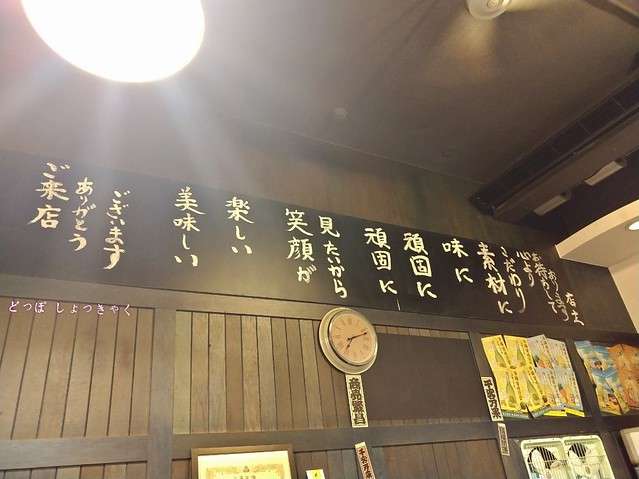 ご来店
ありがとう
ございます
美味しい
楽しい
笑顔が
見たいから
頑固に
頑固に
味に
素材に
こだわり
心より
お待ちして
おります
店主
どっぽ しょっきゃく
商売繁昌
千客万来